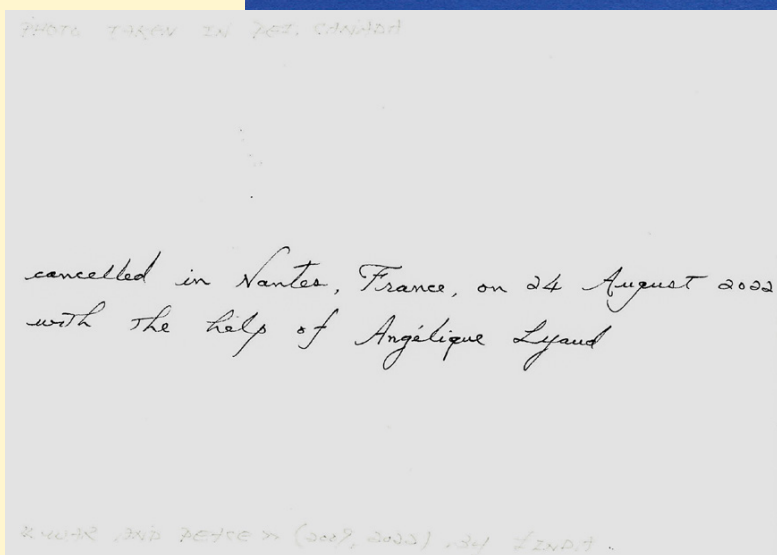 PHOTO TAKEN IN PEI, CANADA
cancelled in Nantes, France, on 24 August 2022
with the help of Angélique Lyaud
"WAR AND PEACE" (2009, 2022)